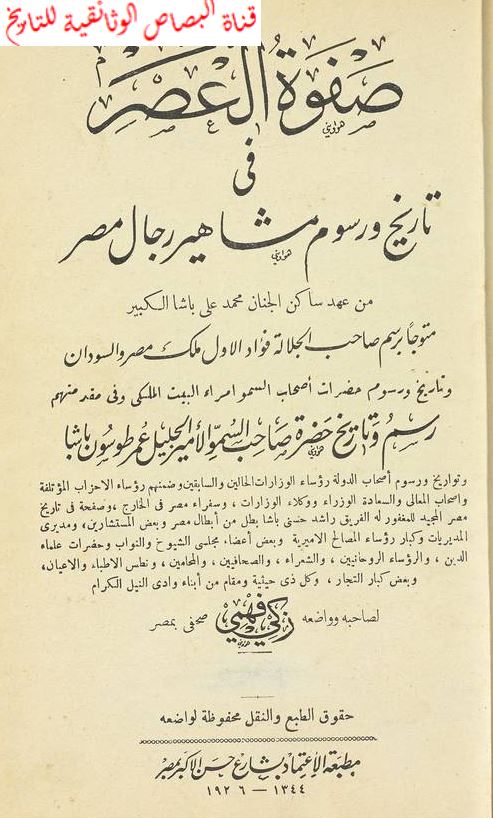 قناة البصاص الوثائقية للتاريخ
صفوة العصر
في
تاريخ ورسوم مشاهير رجال مصر
من عهد ساكن الجنان محمد على باشا الكبير
متوجاً برسم صاحب الجلالة فؤاد الاول ملك مصر والسودان
وتاريخ ورسوم حضرات أصحاب السمو امراء البيت الملكى وفى مقدمتهم
رسم وتاريخ حضرة صاحب السمو الأمير الجليل عمر طوسون باشا
وتواريخ ورسوم أصحاب الدولة رؤساء الوزارات الحالين والسابقين وضمنهم رؤساء الاحزاب المؤتلفة
واصحاب المعالى والسعادة الوزراء ووكلاء الوزارات ، وسفراء مصر فى الخارج ، وصفحة فى تاريخ
مصر المجيد للمغفور له الفريق راشد حسنى باشا بطل من أبطال مصر وبعض المستشارين ، ومديرى
المديريات وكبار رؤساء المصالح الاميرية وبعض أعضاء مجلسى الشيوخ والنواب وحضرات علماء
الدين ، والرؤساء الروحانيين ، والشعراء ، والصحافيين ، والمحامين ، ونطس الاطباء والاعيان ،
وبعض كبار التجار ، وكل ذى حيثية ومقام من أبناء وادى النيل الكرام
لصاحبه وواضعه زكي فهمي صحفى بمصر
حقوق الطبع والنقل محفوظة لواضعه
مطبعة الإعتماد بشارع حسن الأكبر بمصر
١٣٤٤ — ١٩٢٦